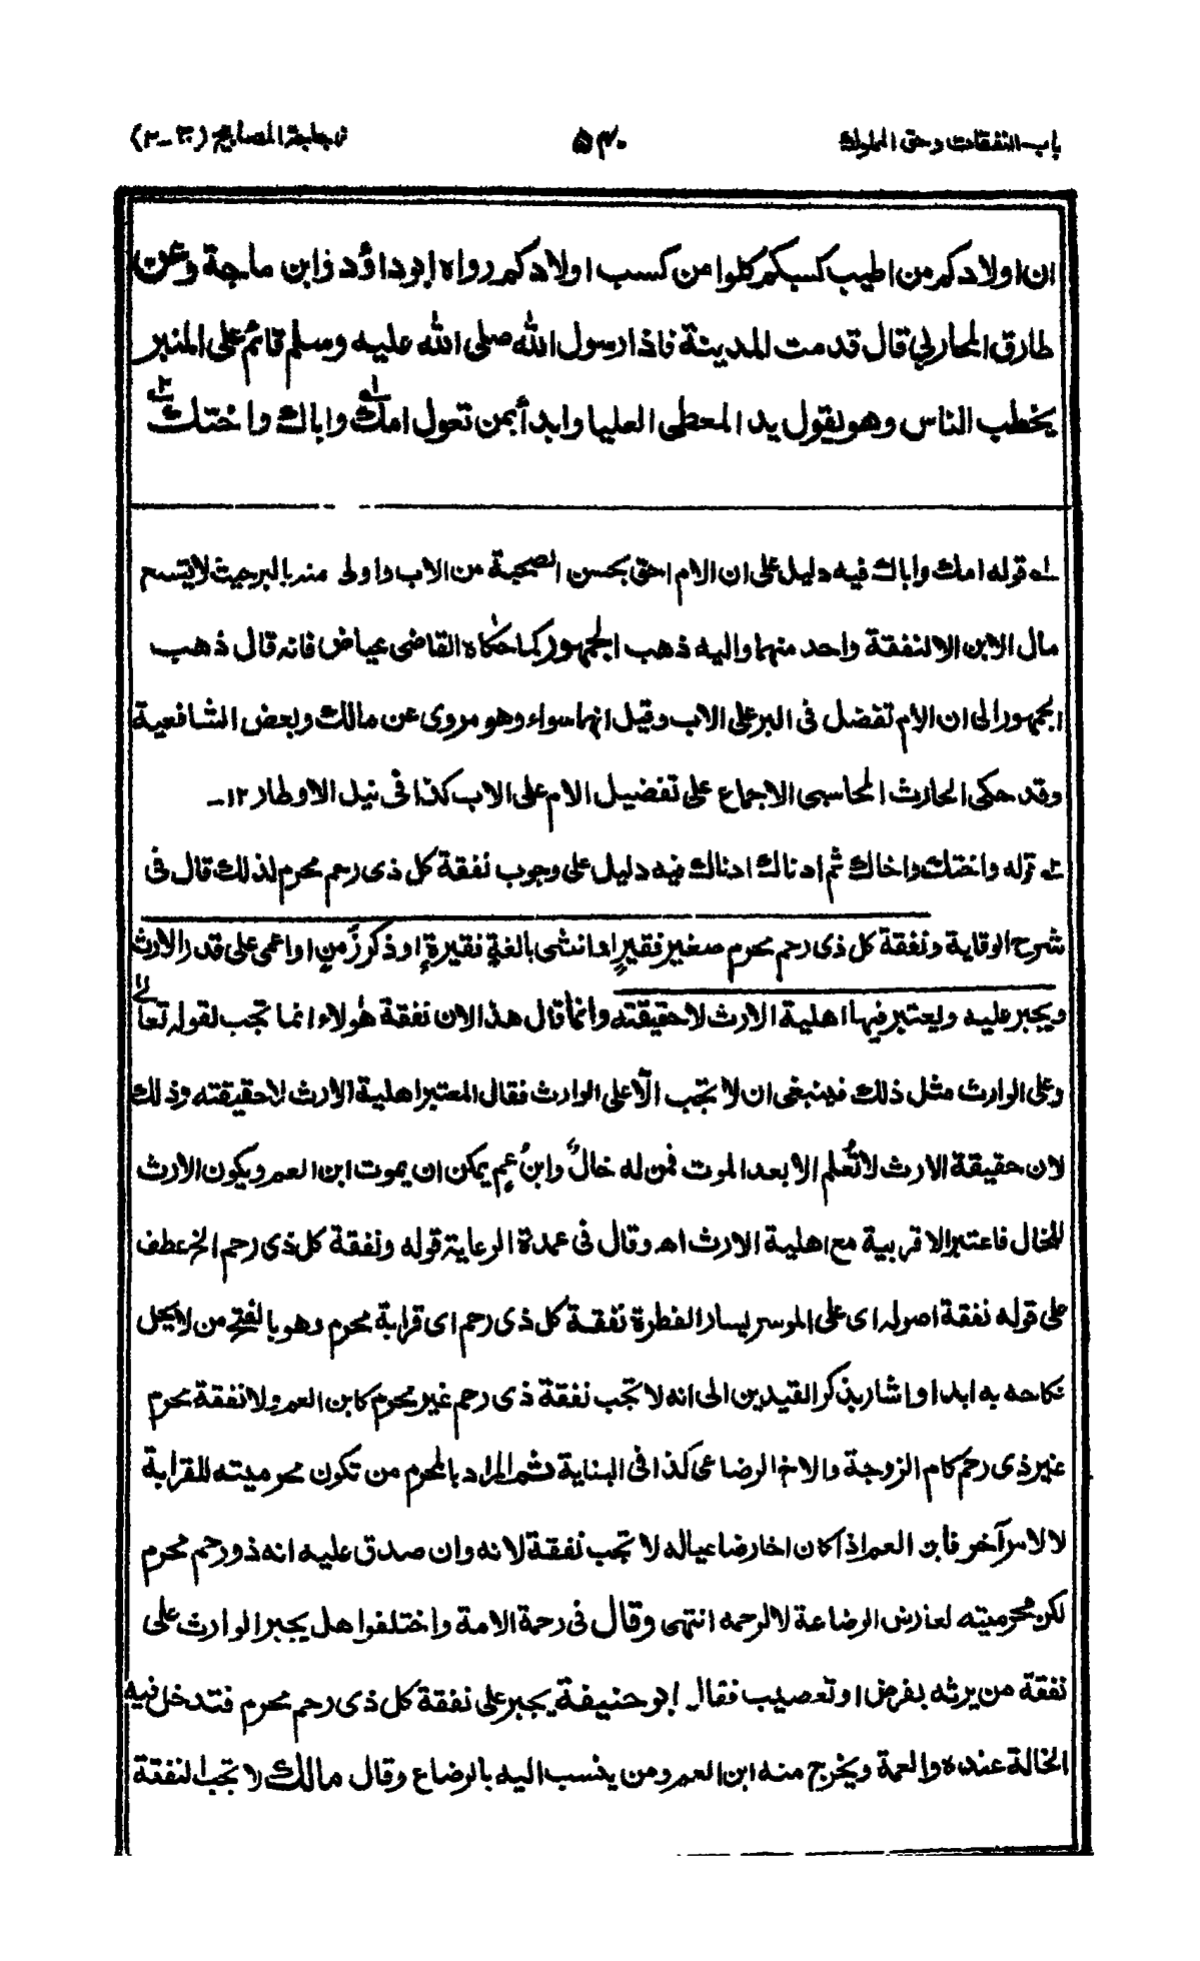 باب النفقات وحق المملوك ٥٤٠ زجاجة المصابيح (ج-٢)
ان اولادكم من اطيب كسبكم كلوا من كسب اولادكم رواه ابوداؤد وابن ماجة وعن
طارق المحاربي قال قدمت المدينة فاذا رسول الله صلى الله عليه وسلم قائم على المنبر
يخطب الناس وهو يقول يد المعطى العليا وابدأ بمن تعول امك وا باك واختك
١ـه قوله امك واباك فيه دليل على ان الام احق بحسن الصحبة من الاب واولى منه بالبر حيث لا يتسع
مال الابن الا لنفقة واحد منهما واليه ذهب الجمهور كما حكاه القاضى عياض فانه قال ذهب
الجمهور الى ان الام تفضل فى البر على الاب وقيل انهما سواء وهو مروى عن مالك وبعض الشافعية
وقد حكى الحارث المحاسبى الاجماع على تفضيل الام على الاب كذا فى نيل الاوطار ١٢ـ
٢ـه قوله واختك واخاك ثم ادناك ادناك فيه دليل على وجوب نفقة كل ذى رحم محرم لذلك قال فى
شرح الوقاية ونفقة كل ذى رحم محرم صغير فقيرٍ او انثى بالغةٍ فقيرةٍ او ذكر زَمِنٍ او اعمى على قدر الارث
ويجبر عليه ويعتبر فيها اهلية الارث لا حقيقته وانما قال هذا لان نفقة هٰولاء انما تجب لقوله تعالى
وعلى الوارث مثل ذلك فينبغى ان لا تجب الّا على الوارث فقال المعتبر اهلية الارث لا حقيقته وذلك
لان حقيقة الارث لا تُعلم الا بعد الموت فمن له خالٌ وابنُ عمٍ يمكن ان يموت ابن العم ويكون الارث
للخال فاعتبر الاقربية مع اهلية الارث اهـ وقال فى عمدة الرعاية قوله ونفقة كل ذى رحم الخ عطف
على قوله نفقة اصوله اى على الموسر يسار الفطرة نفقة كل ذى رحم اى قرابة محرم وهو بالفتح من لا يحل
نكاحه به ابدا واشار بذكر القيدين الى انه لا تجب نفقة ذى رحم غير محرم كابن العم ولا نفقة محرم
غير ذى رحم كام الزوجة والاخ الرضاعى كذا فى البناية ثم المراد بالمحرم من تكون محرميته للقرابة
لا لامر آخر فابن العم اذا كان اخا رضاعيا له لا تجب نفقة لانه وان صدق عليه انه ذو رحم محرم
لكن محرميته لعارض الرضاعة لا لرحمه انتهى وقال فى رحمة الامة واختلفوا هل يجبر الوارث على
نفقة من يرثه بفرض او تعصيب فقال ابو حنيفة يجبر على نفقة كل ذى رحم محرم فتدخل فيه
الخالة عنده والعمة ويخرج منه ابن العم ومن ينسب اليه بالرضاع وقال مالك لا تجب النفقة